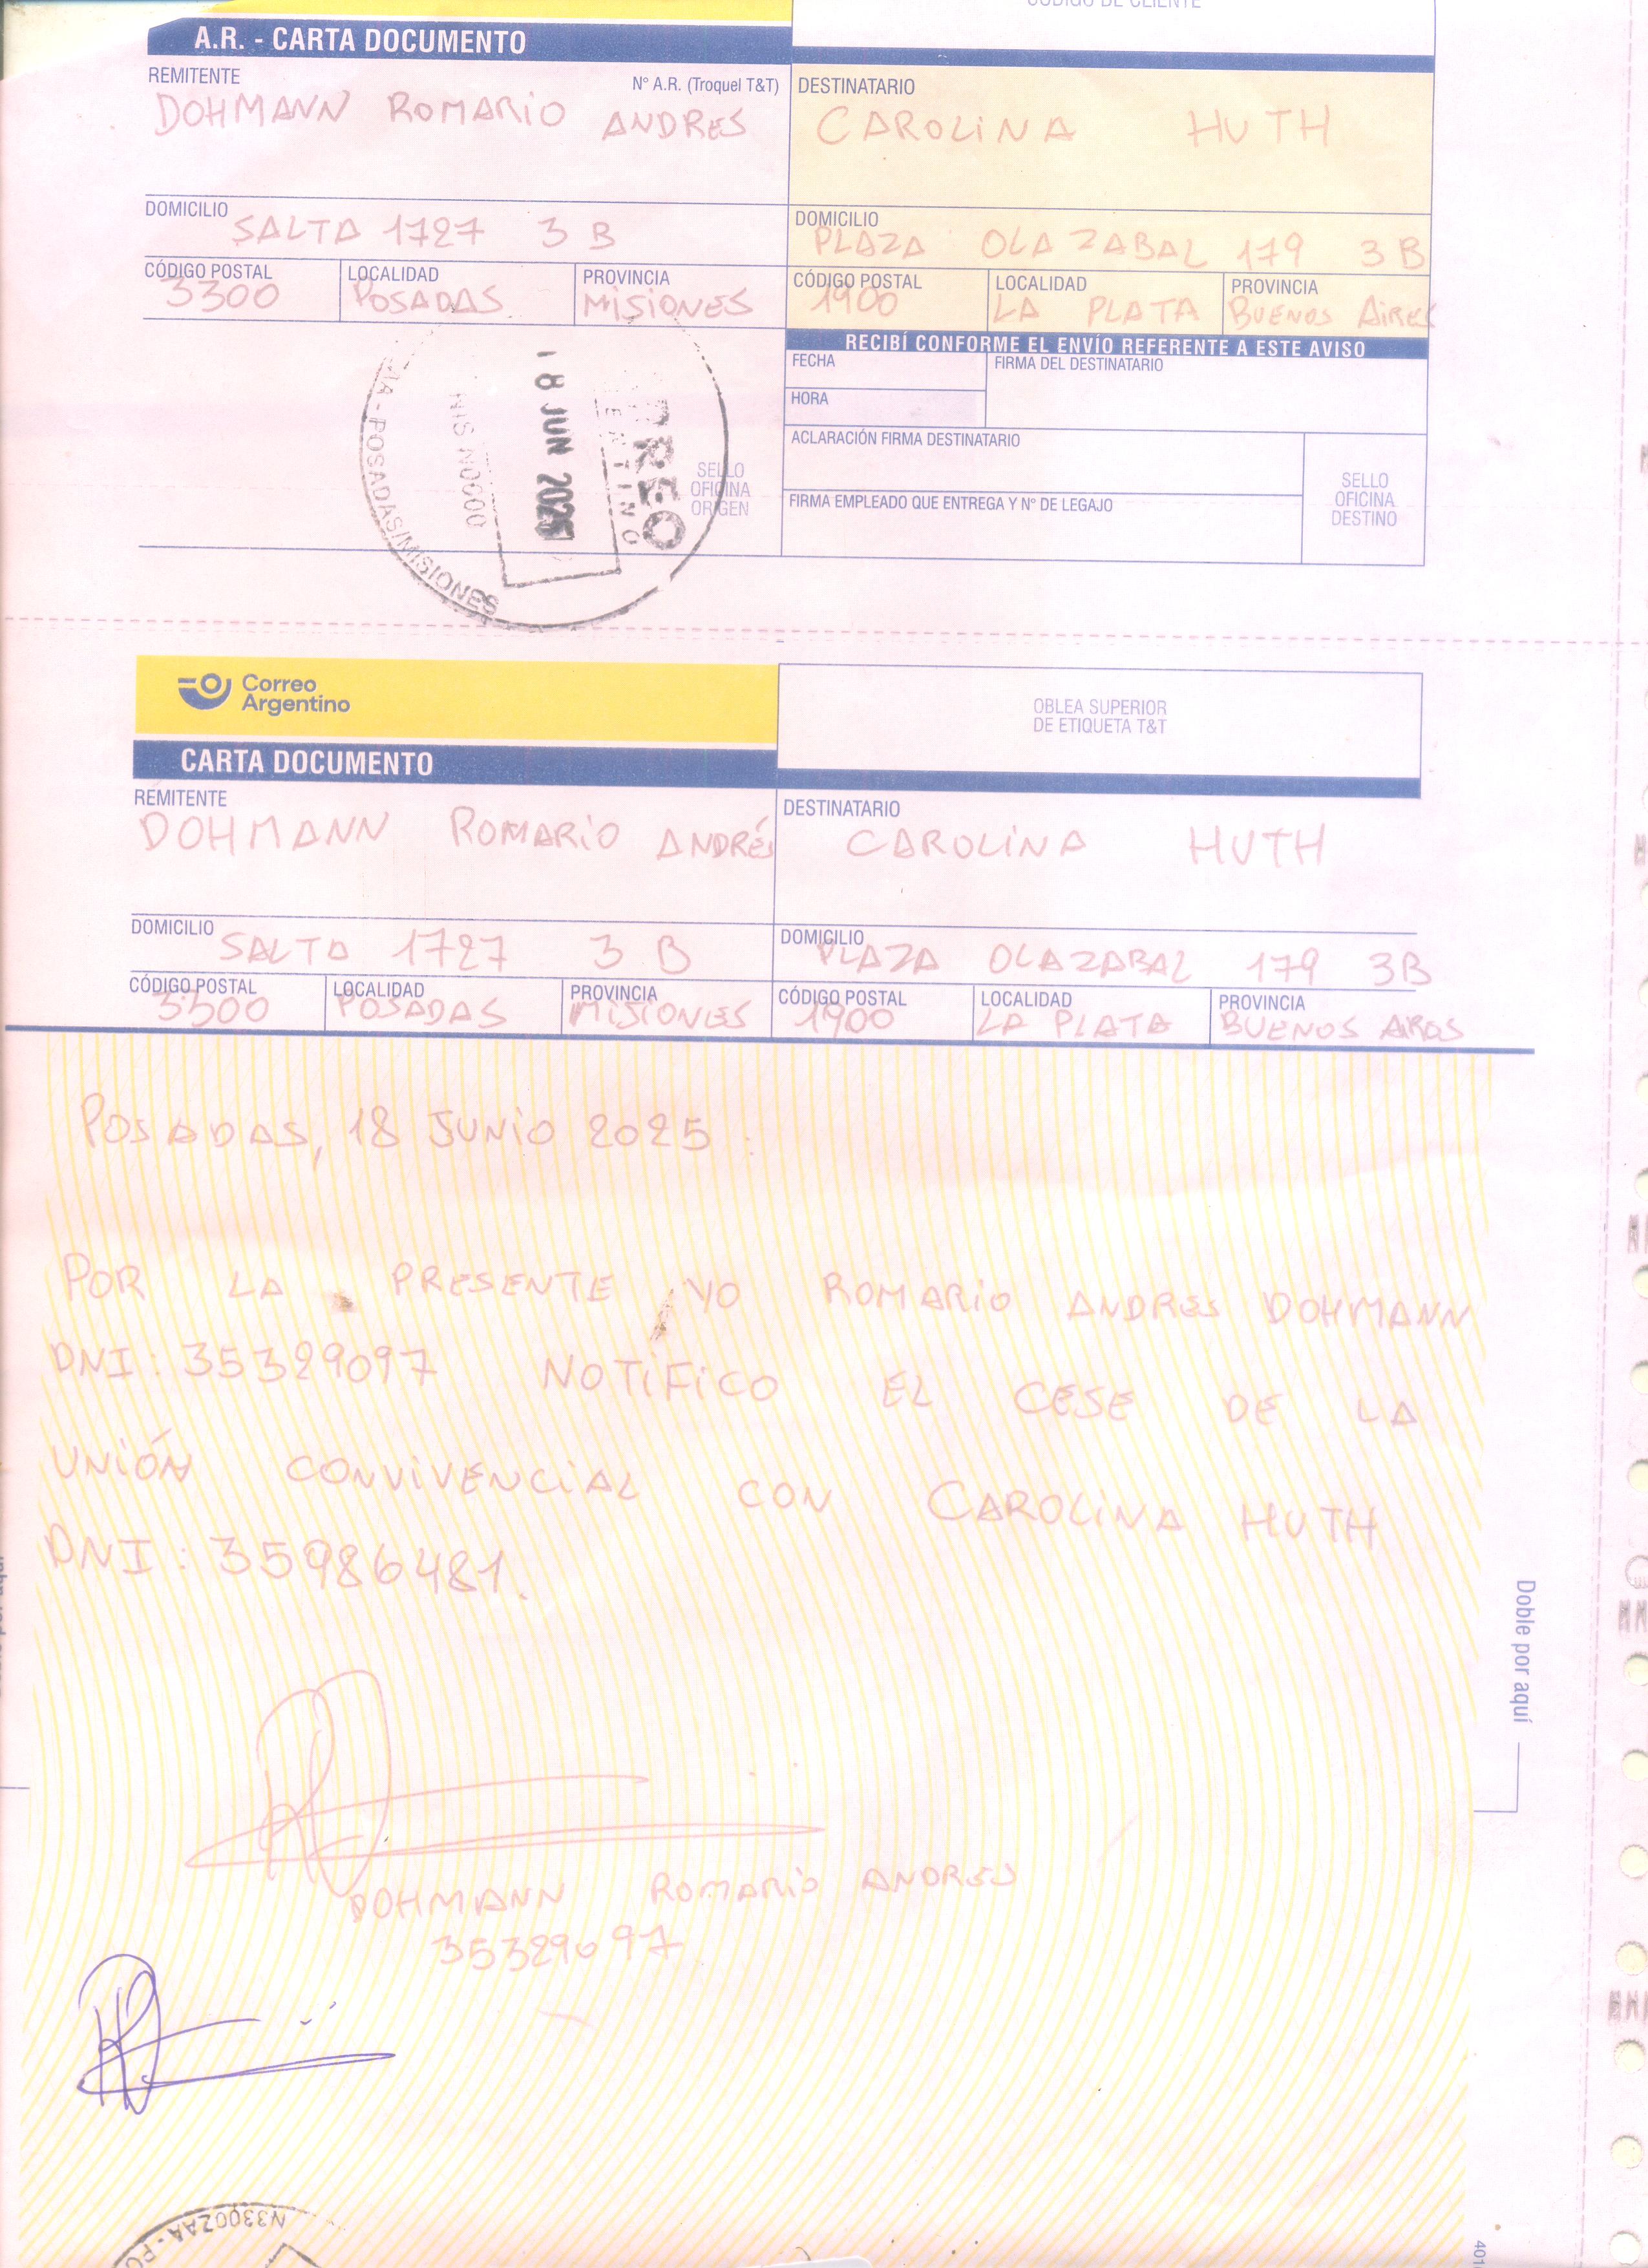 CÓDIGO DE CLIENTE
A.R. - CARTA DOCUMENTO
REMITENTE
N° A.R. (Troquel T&T)
DESTINATARIO
DOHMANN ROMARIO ANDRES
CAROLINA HUTH
DOMICILIO
SALTA 1727 3 B
DOMICILIO
PLAZA OLAZABAL 179 3B
CÓDIGO POSTAL
3300
LOCALIDAD
POSADAS
PROVINCIA
MISIONES
CÓDIGO POSTAL
1900
LOCALIDAD
LA PLATA
PROVINCIA
BUENOS AIRES
RECIBÍ CONFORME EL ENVÍO REFERENTE A ESTE AVISO
FECHA
FIRMA DEL DESTINATARIO
HORA
ACLARACIÓN FIRMA DESTINATARIO
FIRMA EMPLEADO QUE ENTREGA Y N° DE LEGAJO
SELLO
OFICINA
ORIGEN
SELLO
OFICINA
DESTINO
18 JUN 2025
POSADAS/MISIONES
Correo
Argentino
OBLEA SUPERIOR
DE ETIQUETA T&T
CARTA DOCUMENTO
REMITENTE
DESTINATARIO
DOHMANN ROMARIO ANDRÉS
CAROLINA HUTH
DOMICILIO
SALTA 1727 3 B
DOMICILIO
PLAZA OLAZABAL 179 3B
CÓDIGO POSTAL
3300
LOCALIDAD
POSADAS
PROVINCIA
MISIONES
CÓDIGO POSTAL
1900
LOCALIDAD
LA PLATA
PROVINCIA
BUENOS AIRES
POSADAS, 18 JUNIO 2025.
POR LA PRESENTE YO ROMARIO ANDRES DOHMANN
DNI: 35329097 NOTIFICO EL CESE DE LA
UNIÓN CONVIVENCIAL CON CAROLINA HUTH
DNI: 35986481.
Doble por aquí
DOHMANN ROMARIO ANDRES
35329097
N3300ZAA - PO
401